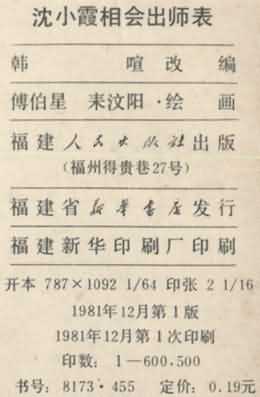 沈小霞相会出师表
韩 喧 改 编
傅伯星 耒汶阳·绘 画
福建人民出版社出版
（福州得贵巷27号）
福建省新华书店发行
福建新华印刷厂印刷
开本 787×1092 1/64 印张 2 1/16
1981年12月第1版
1981年12月第1次印刷
印数：1—600,500
书号：8173·455 定价：0.19元